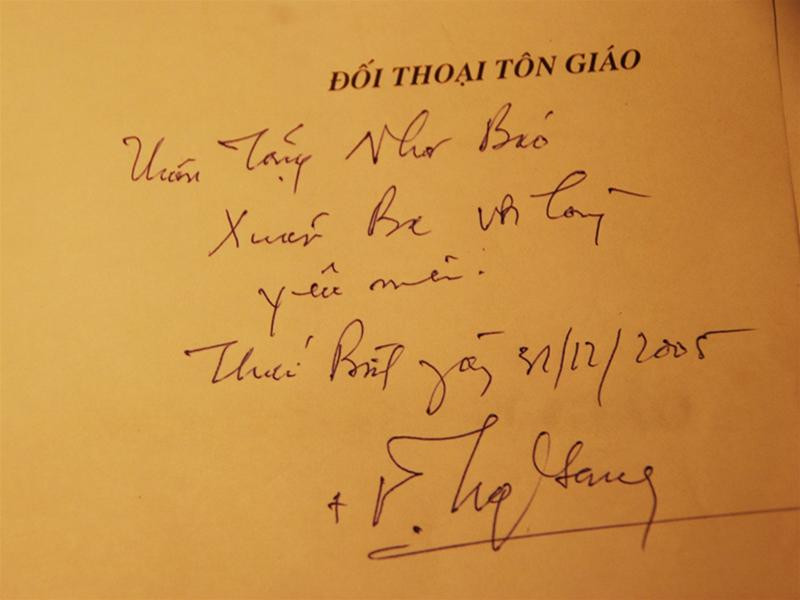 ĐỐI THOẠI TÔN GIÁO
Thân Tặng Nhà Báo
Xuân Ba với lòng
yêu mến.
Thái Bình ngày 31/12/2005
+ F.